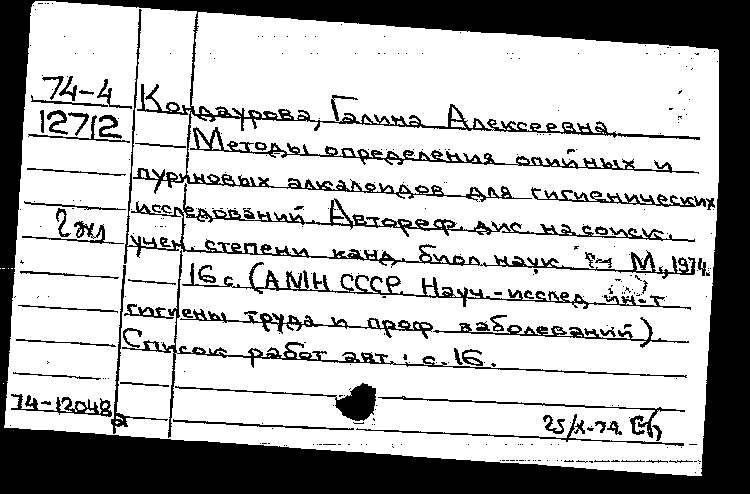 74-4 Кондаурова, Галина Алексеевна.
12712 Методы определения опийных и
пуриновых алкалоидов для гигиенических
исследований. Автореф. дис. на соиск.
2 экз учен. степени канд. биол. наук. М., 1974.
16 с. (АМН СССР. Науч.-исслед. ин-т
гигиены труда и проф. заболеваний).
Список работ авт.: с. 16.
74-12048
25/X-74